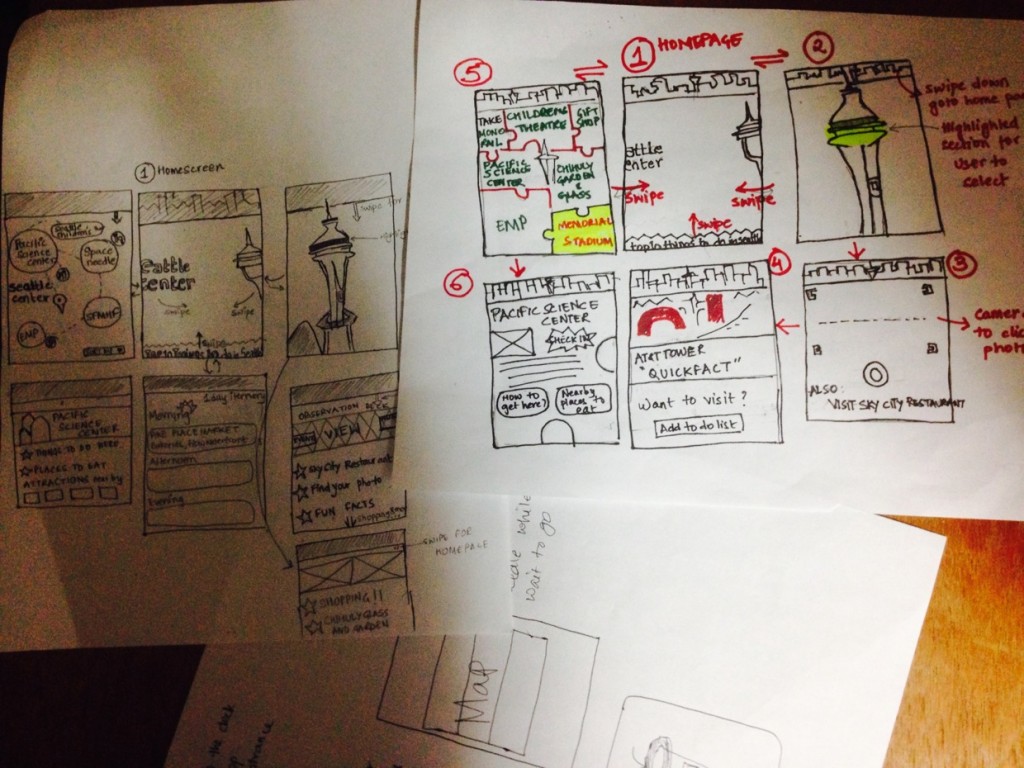 1 HOMESCREEN
Pacific
Science
center
Seattle
Children's
Space
needle
seattle
center
EMP
Seattle
Center
swipe
swipe
swipe
PACIFIC
SCIENCE
CENTER
THINGS TO DO HERE
PLACES TO EAT
ATTRACTIONS nearby
Morning
PIKE PLACE MARKET
Afternoon
Evening
OBSERVATION DECK
VIEW
Sky City Restaurant
Find your photo
FUN FACTS
SWIPE FOR
HOMEPAGE
SHOPPING !!
CHIHULY GLASS
AND GARDEN
5
TAKE
MONO
RAIL
CHILDRENS
THEATRE
GIFT
SHOP
PACIFIC
SCIENCE
CENTER
CHIHULY
GARDEN
&
GLASS
EMP
MEMORIAL
STADIUM
1 HOMEPAGE
attle
Center
swipe
swipe
swipe
top 10 things to do in seattle
2
swipe down
goto home pa
Highlighted
section for
user to
select
6
PACIFIC SCIENCE
CENTER
CHECK IN
HOW to
get here?
Nearby
places to
eat
4
AT&T TOWER
"QUICKFACT"
Want to visit?
Add to do list
3
Camera
to clic
photo
ALSO:
VISIT SKY CITY RESTAURANT
while
wait to go
Map
the clock